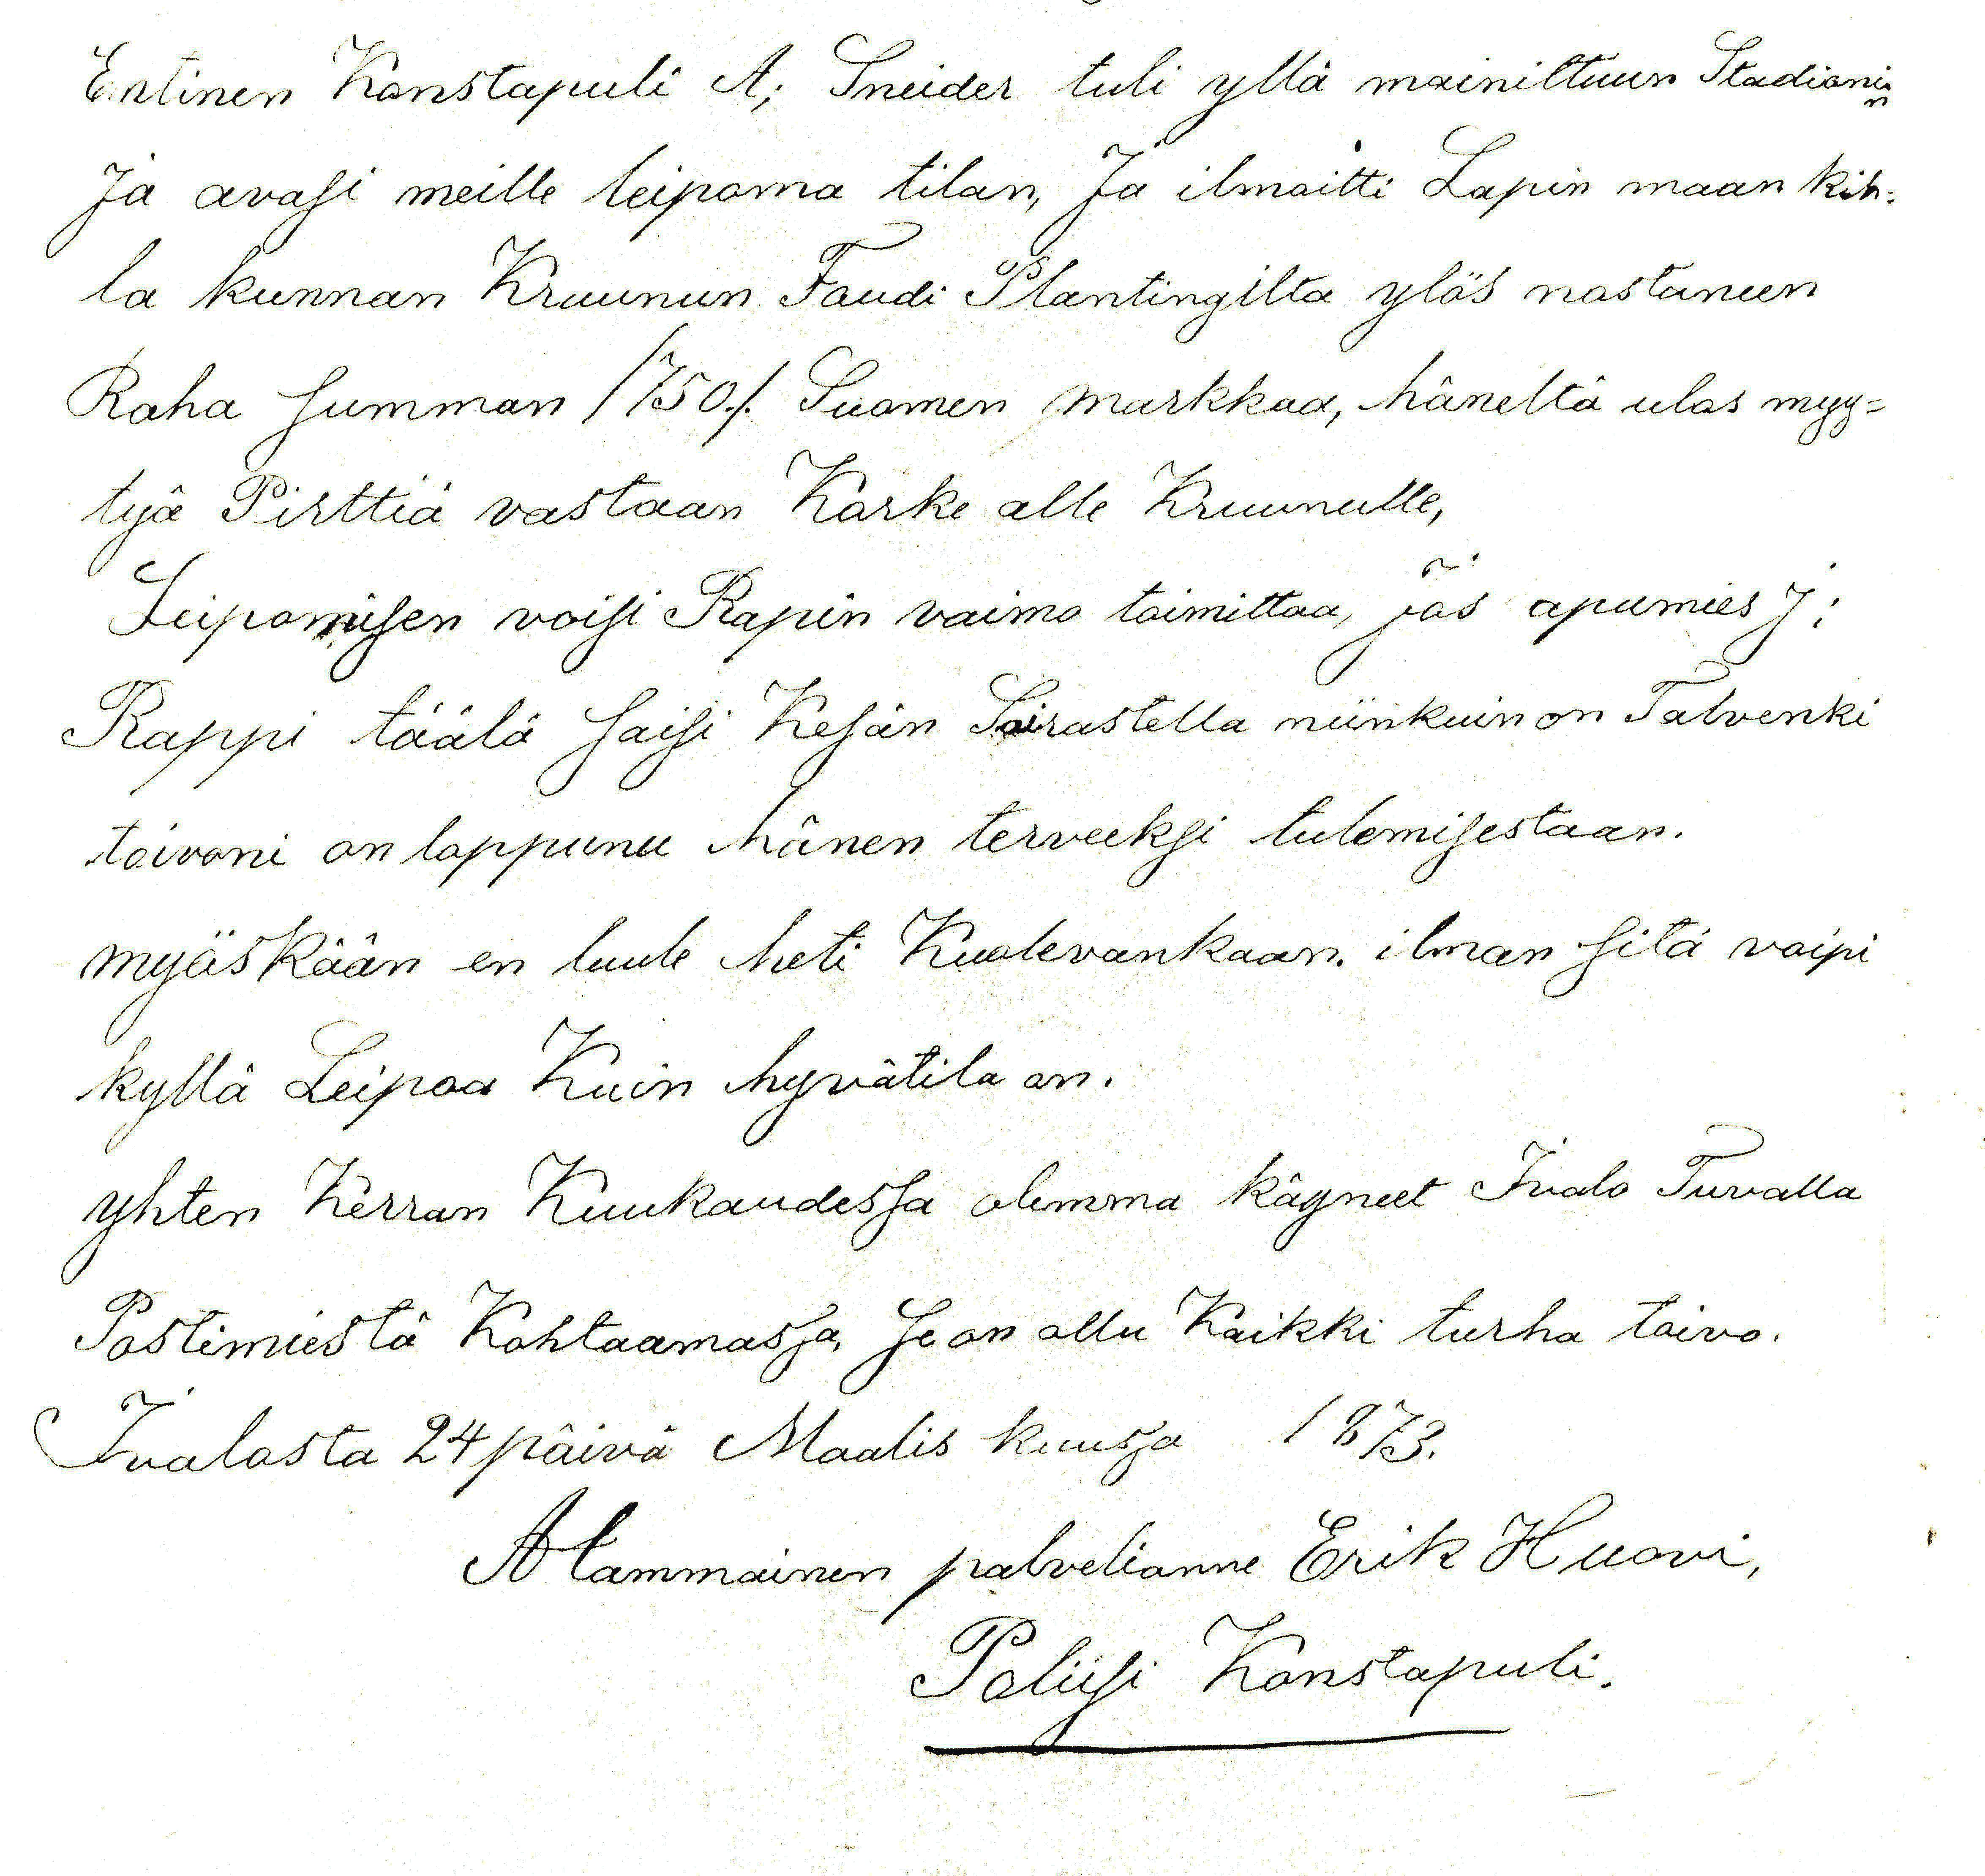 Entinen Konstapuli A; Sneider tuli yllä mainittuun Stadionin
Ja avasi meille leipoma tilan, Ja ilmoitti Lapin maan kih=
la kunnan Kruunun Foudi Plantingilta ylös nostaneen
Raha summan /750./. Suomen markkaa, häneltä ulos myy=
tyä Pirttiä vastaan Korke alle Kruunulle,
Leipomisen voisi Rapin vaimo toimittaa, jos apumies J;
Rappi täälä saisi Kesän Sairastella niinkuin on Talvenki
toivoni on loppunu hänen terveeksi tulemisestaan.
myöskään en luule heti Kuolevankaan. ilman sitä voipi
kyllä Leipoa Kuin hyvätila on.
yhten Kerran Kuukaudessa olemma käyneet Ivalo Tuvalla
Postimiestä Kohtaamassa, se on ollu Kaikki turha toivo.
Ivalosta 24 päivä Maalis kuussa 1873.
Alammainen palvelianne Erik Huovi,
Poliisi Konstapuli.